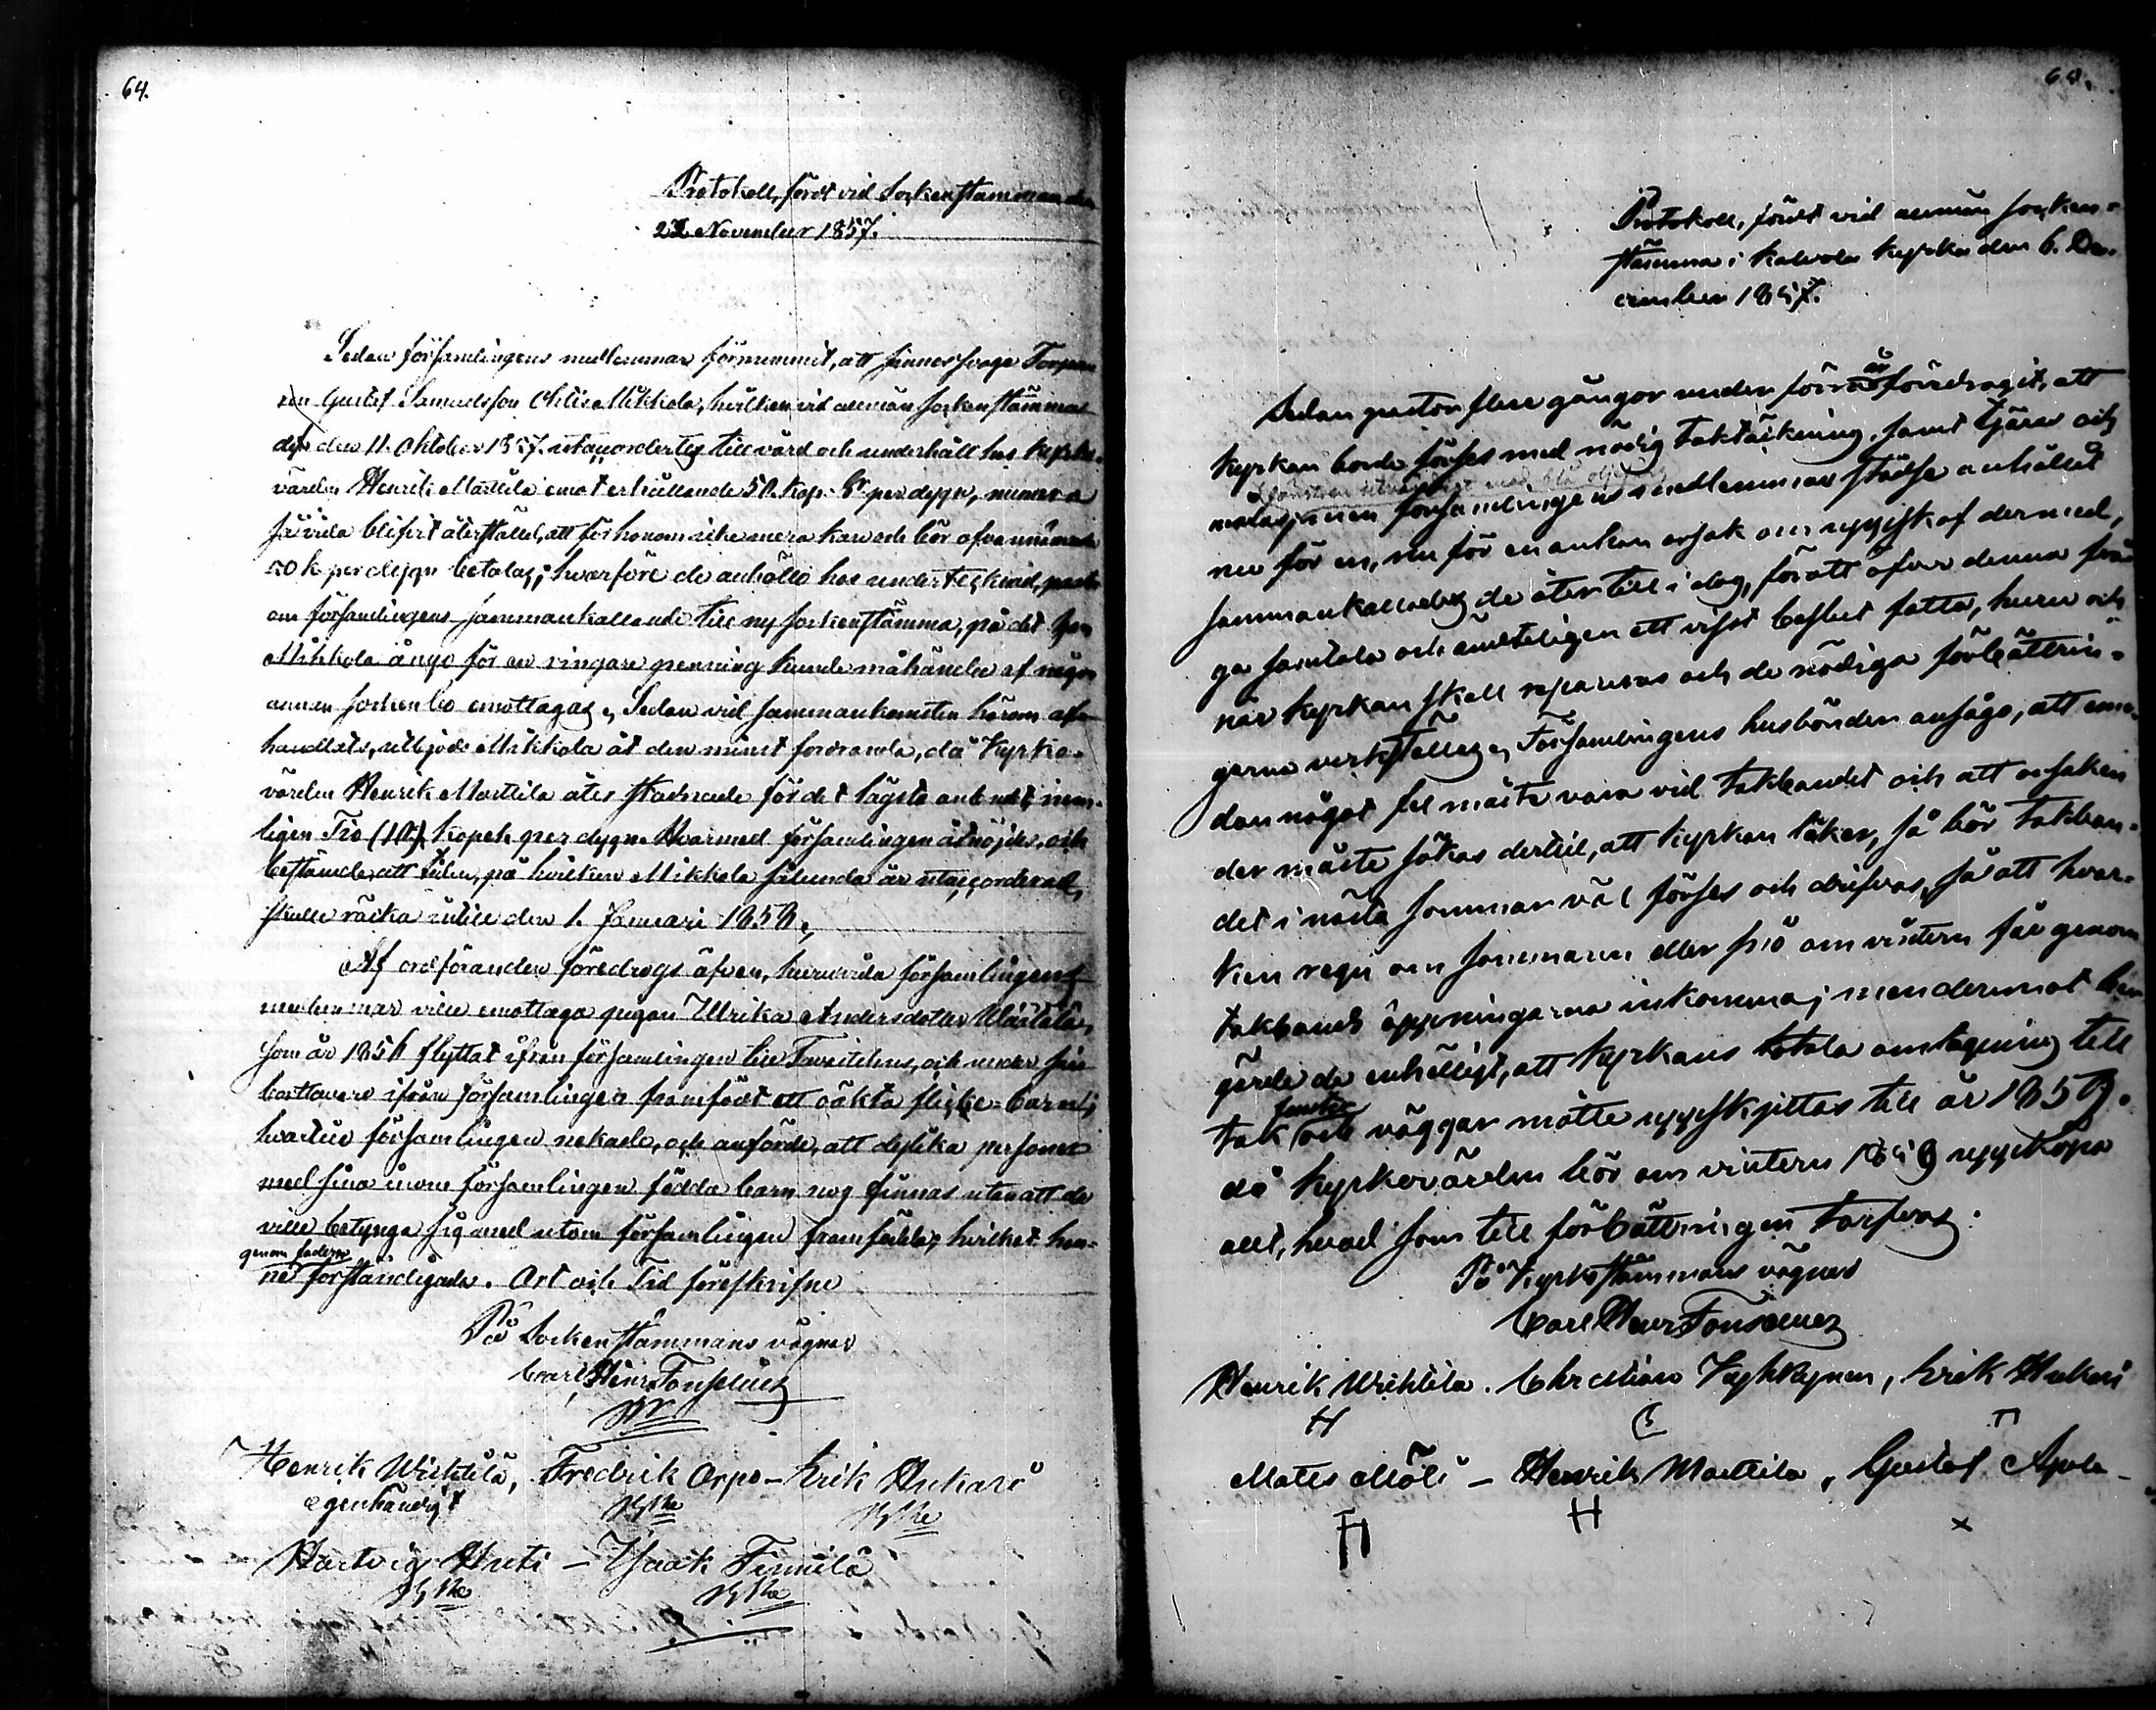 64.
Protokoll, fördt vid Sockenstämman den
22 November 1857.
Sedan församlingens medlemmar förnummit, att sinnessvage Torpa-
ren Gustaf Samuelsson Mikkola, hvilken vid allmän sockenstämma
den 11. Oktober 1857. utackorderts till vård och underhåll hos kyrko-
värden Henrik Marttila emot erhållande 50. kop. Sr per dygn, numera
såvida blifvit återställd, att för honom icke mera kan och bör ofvannämnde
50 k per dygn betalas; hvarföre de anhöllo hos undertecknad,
om församlingens sammankallande till ny sockenstämma, på det
Mikkola ånyo för en ringare penning kunde måhända af någon
annan sockenbo emottagas, Sedan vid sammankomsten härom af-
handlats, utbjöds Mikkola åt den minst fordrande, då Kyrko-
värden Henrik Marttila åter stadnade för det lägsta anbudet, nem-
ligen Tio (10) kopek per dygn. Hvarmed församlingen åtnöjdes, och
bestämde, att tiden, på hvilken Mikkola sålunda är utackorderad,
skulle räcka intill den 1. Januari 1858.,
Af ordföranden föredrogs äfven, huruvida församlingens
medlemmar ville emottaga pigan Ulrika Andersdotter
som år 1856 flyttat ifrån församlingen till och under sin
bortovaro ifrån församlingen framfödt ett oäkta flicke-barn;
hvartill församlingen nekade, och anförde, att deslika personer
med sina inom församlingen födda barn nog finnas utan att de
ville betynga sig med utom församlingen framfödda, hvilket hen-
genom fadren
ne förständigade. Ort och Tid föreskrifne
På Sockenstämmans vägnar
Carl Henr. Fonselius
Henrik Wichtilä, Fredrik Orpo - Erik Hukari
egenhändigt
Hartvig Huti - Isaak Finnilä
Protokoll, fördt vid allmän socken-
stämma i Kalvola kyrka den 6. De-
cember 1857.
Sedan pastor flere gångor under föra år föredragit, att
kyrkan borde förses med nödig taktäckning, samt tjäras och
målas, men församlingens medlemmar städse anhållit
nu för en, nu för en annan orsak om uppskof dermed,
sammankallades de åter till i dag, för att öfver denna frå-
ga samtala och ändteligen ett visst beslut fatta, huru och
när kyrkan skall repareras och de nödiga förbättrin-
garna verkställas, Församlingens husbönder ansågo, att eme-
dan något fel måste vara vid takbandet och att orsaken
der måste sökas dertill, att kyrkan läker, så bör takban-
det i nästa sommar väl förses och drifvas, så att hvar-
ken regn om sommarn eller snö om vintern får genom
takbands öppningarna inkomma; men deremot be-
gärde de enhälligt, att kyrkans totala omlagning till
fenster
tak och väggar måtte uppskjutas till år 1859.
då kyrkovärden bör om vintern 1859 uppköpa
allt, hvad som till förbättringen tarfvas.
På Kyrkostämmans vägnar
Carl Henr Fonselius
Henrik Wichtilä. Christian, Erik Hukari
H
Matts Möli - Henrik Marttila, Gustaf Apola -
H
x